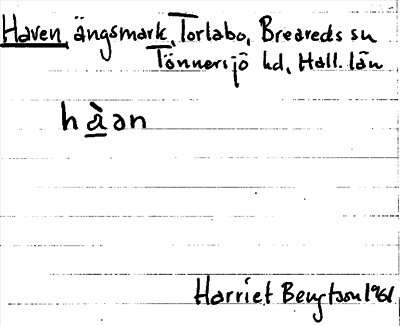 Haven, ängsmark, Torlabo, Breareds sn
Tönnersjö hd, Hall. län
hàən
Harriet Bengtson 1961